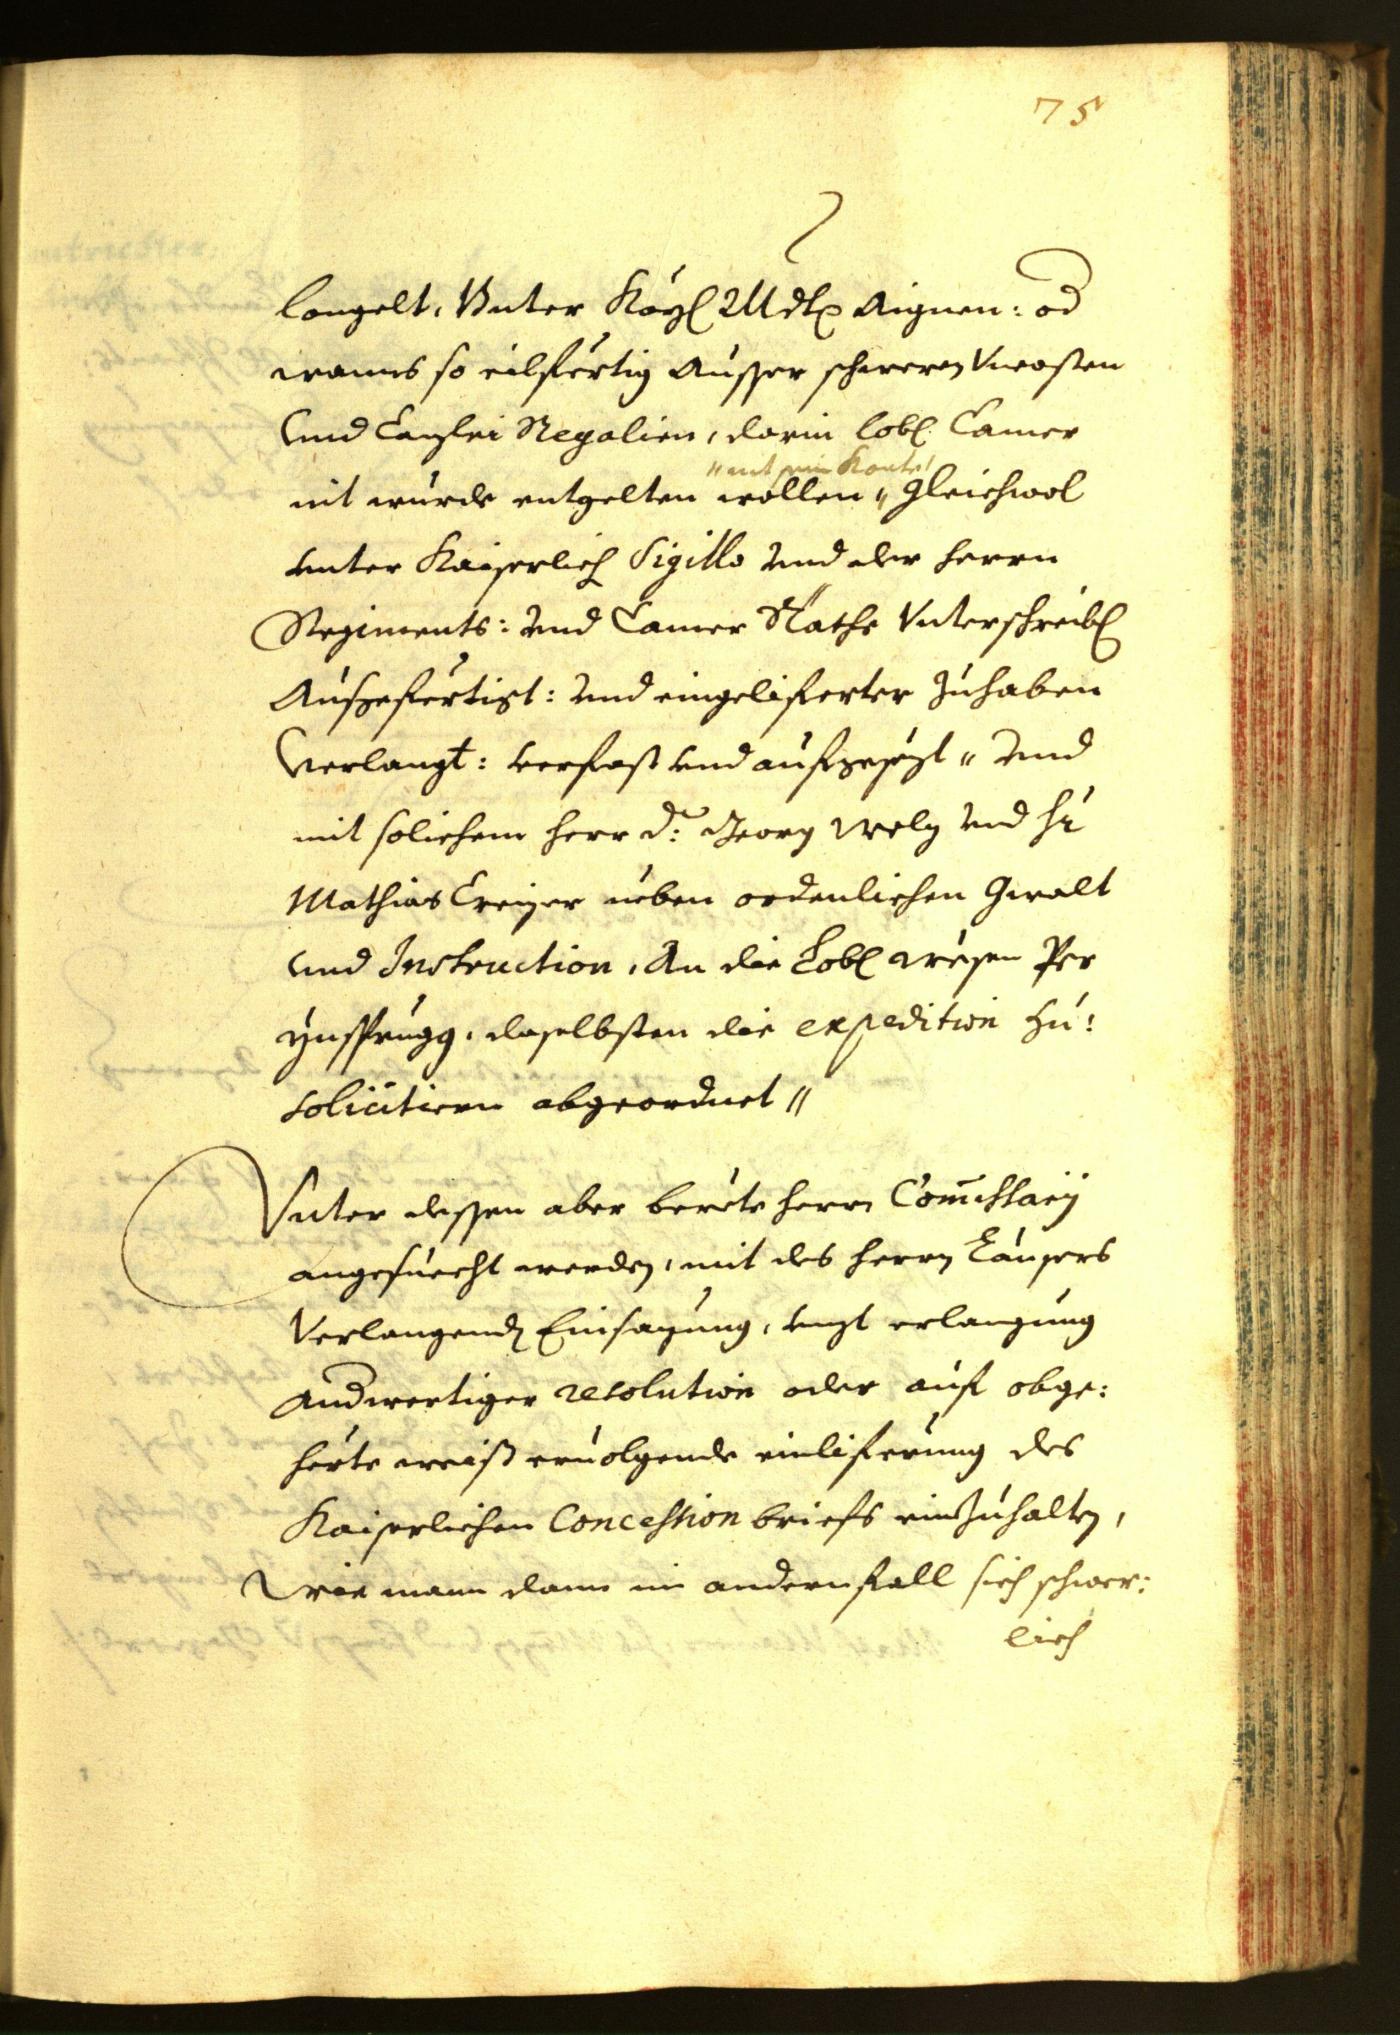 75
langelt, Vnter Kayl Mdt Aignen: od
wanns so eilfertig Ausser schweren Vncosten
Vnd Canzlei Regalien, darin lobl. Camer
nit würde entgelten wollen " Gleichwol
vnter Kaiserlich Sigillo vnd der herrn
Regiments: vnd Camer Räthe Vnterschreibl
Ausgefertigt: vnd eingelifferter zuhaben
Verlangt: verfast vnd aufgesezt " vnd
mit solichem herr d: Georg Welz vnd hr
Mathias Creizer neben ordenlichen Gwalt
vnd Instruction, An die Lobl wesen Per
Ynsprugg, daselbsten die expedition zu:
solicitiern abgeordnet "
Vnter dessen aber berete herrn Com̄issarij
angesuecht werden, mit des herrn
Verlangend Einsazung, vnzt erlangung
andwertiger resolution oder auf obge:
herte weiß ervolgende einliferung des
Kaiserlichen Concession briefs einzuhalten,
Wie mann dann im andern fall sich schwer:
lich